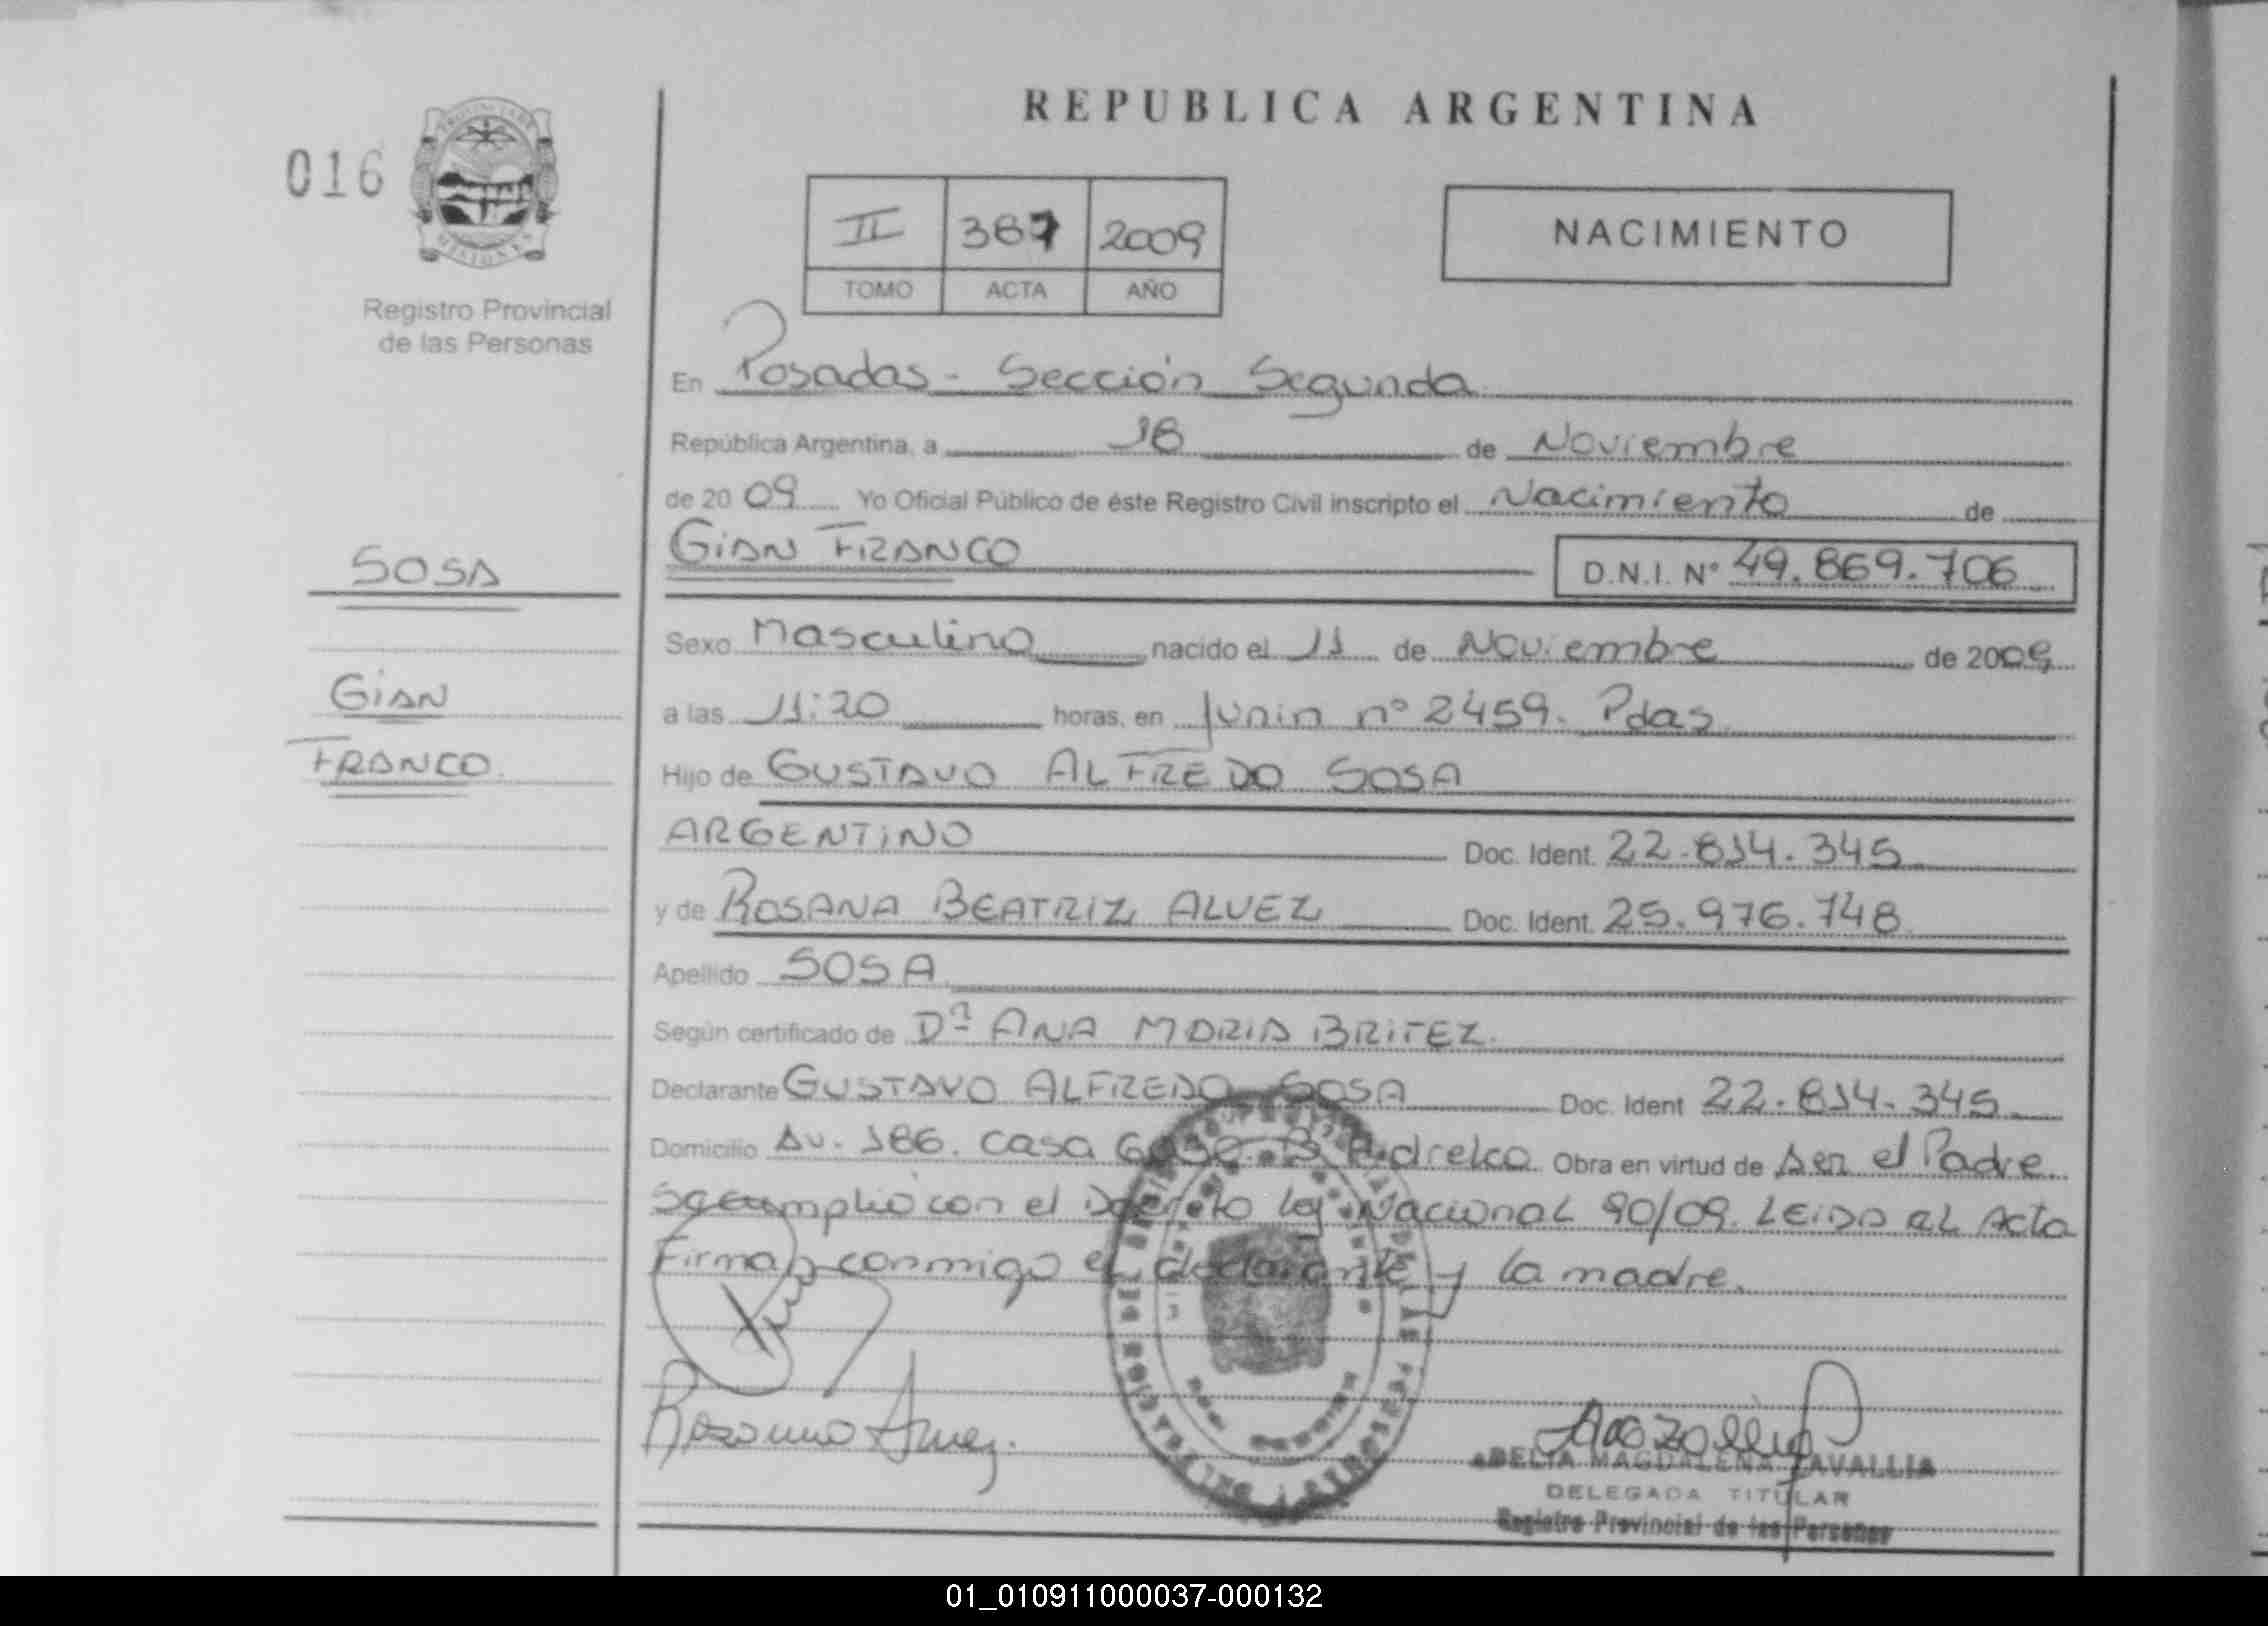 REPUBLICA ARGENTINA
016
PROVINCIA DE MISIONES
Registro Provincial
de las Personas
II 387 2009
TOMO ACTA AÑO
NACIMIENTO
En Posadas - Sección Segunda
República Argentina, a 16 de Noviembre
de 2009 Yo Oficial Público de éste Registro Civil inscripto el Nacimiento de
GIAN FRANCO D.N.I. Nº 49.869.706
SOSA
GIAN
FRANCO
Sexo Masculino nacido el 11 de Noviembre de 2009
a las 11:20 horas, en Junin nº 2459. Pdas
Hijo de GUSTAVO ALFREDO SOSA
ARGENTINO Doc. Ident. 22.814.345
y de ROSANA BEATRIZ ALVEZ Doc. Ident. 25.976.748
Apellido SOSA
Según certificado de Dª ANA MARIA BRITEZ.
Declarante GUSTAVO ALFREDO SOSA Doc. Ident 22.814.345
Domicilio Av. 186. casa Obra en virtud de ser el Padre
Se cumplió con el Decreto Ley Nacional 90/09. LEIDA el Acta
Firman conmigo el declarante y la madre.
ADELIA MAGDALENA ZAVALLIA
DELEGADA TITULAR
Registro Provincial de las Personas
01_010911000037-000132